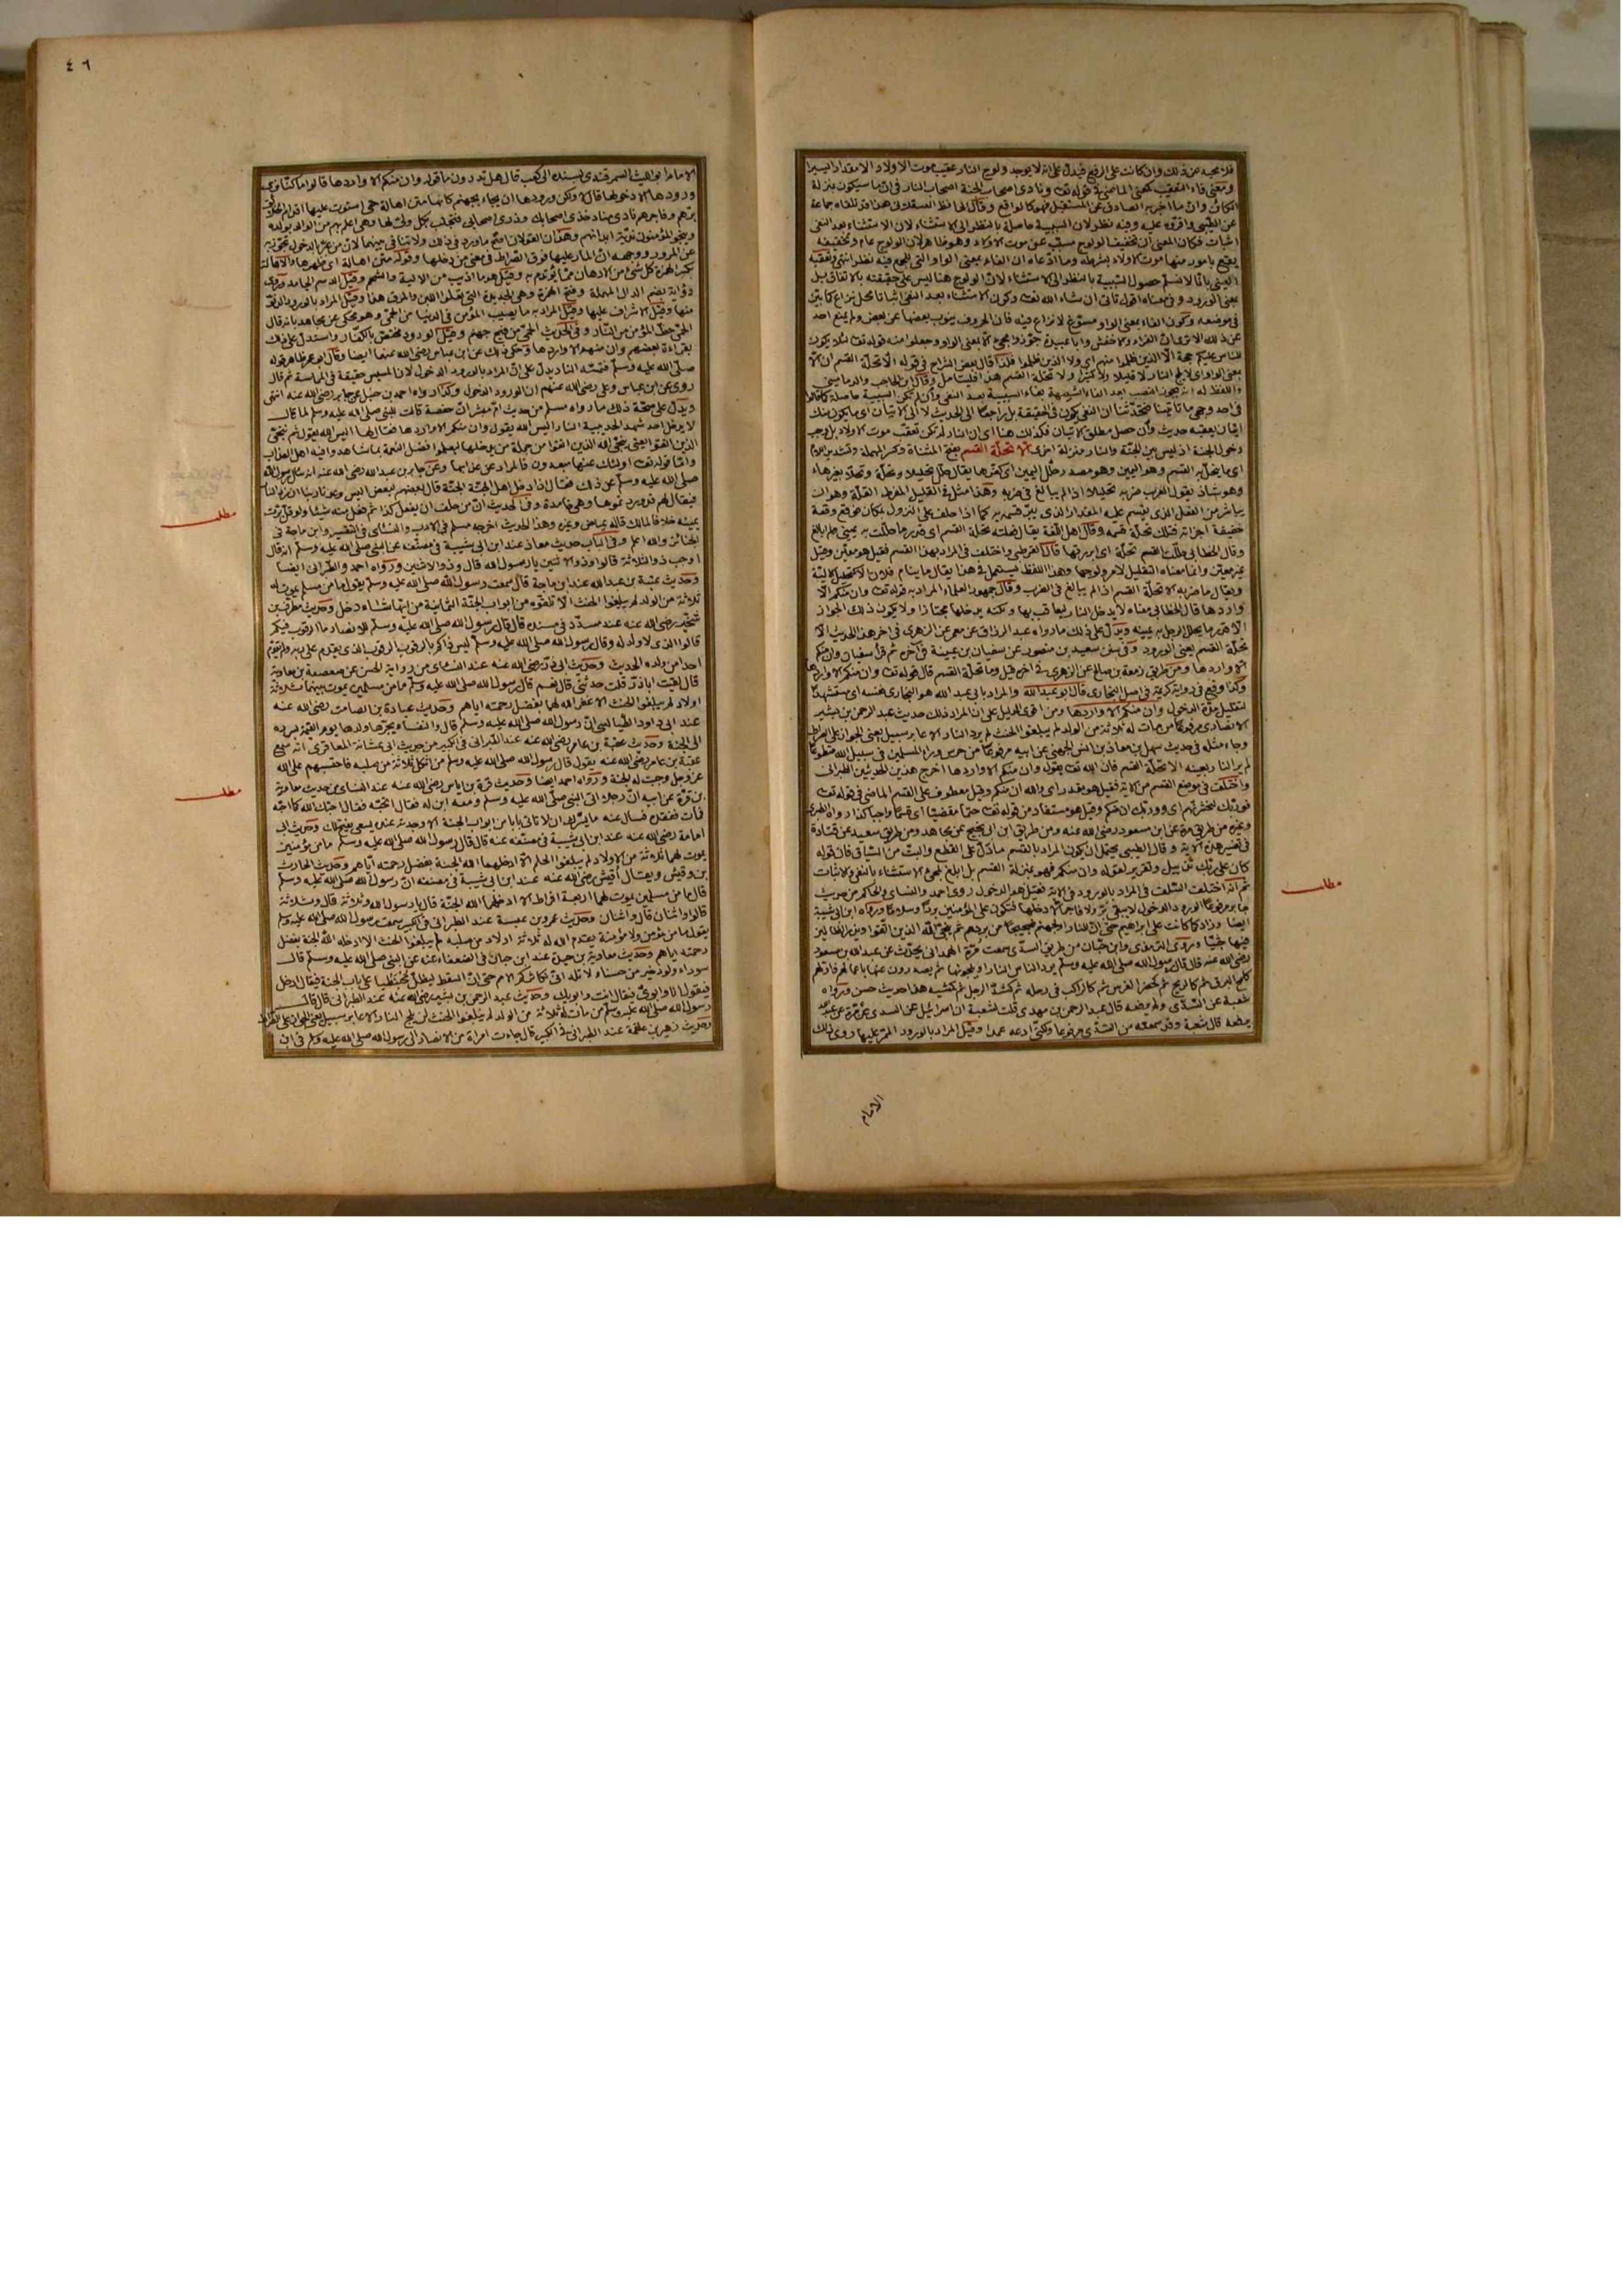 فلا محيد عن ذلك وان كانت على الرفع فيدل على انه لا يوجد ولوج النار عقيب موت الاولاد الا مقدارا يسيرا
ومعنى فاء التعقيب كمعنى الماضي في قوله تعالى ونادى اصحاب الجنة اصحاب النار في ان ما سيكون بمنزلة
الكائن وان ما اخبر به الصادق عن المستقبل فهو كالواقع وقال الحافظ العسقلاني هذا قد تلقاه جماعة
عن الطيبي واقروه عليه وفيه نظر لان السببية حاصلة بالنظر الى الاستثناء لان الاستثناء بعد النفي
اثبات فكان المعنى ان تخفيف الولوج مسبب عن موت الاولاد وهو ظاهر لان الولوج عام وتخفيفه
يقع بامور منها موت الاولاد بشرطه وما ادعاه ان الفاء بمعنى الواو التي للجمع فيه نظر انتهى وتعقبه
العيني بانا لا نسلم حصول السببية بالنظر الى الاستثناء لان الولوج هنا ليس على حقيقته بالاتفاق بل
بمعنى الورود وفي معناه اقوال تأتي ان شاء الله تعالى وكون الاستثناء بعد النفي اثباتا محل نزاع كما بين
في موضعه وكون الفاء بمعنى الواو مستوغ لا نزاع فيه فان الحروف ينوب بعضها عن بعض ولم يمنع احد
عن ذلك الا ترى ان الفراء والاخفش وابا عبيدة جوزوا مجئ الا بمعنى الواو وجعلوا منه قوله تعالى لئلا يكون
للناس عليكم حجة الا الذين ظلموا منهم اي ولا الذين ظلموا فلذا قال بعض الشراح في قوله الا تحلة القسم ان الا
بمعنى الواو اي لا يلج النار لا قليلا ولا كثيرا ولا تحلة القسم هذا فليتأمل وقال ابن الحاجب والدماميني
واللفظ له انه يجوز النصب بعد الفاء الشبيهة بفاء السببية بعد النفي وان لم تكن السببية حاصلة كما قالوا
في احد وجهي ما تأتينا فتحدثنا ان النفي يكون في الحقيقة بل راجعا الى الحديث لا الى الاتيان اي ما يكون منك
اتيان يعقبه حديث وان حصل مطلق الاتيان فكذلك هنا اي ان النار لم تكن تعقب موت الاولاد بل وجب
دخول الجنة اذ ليس بين الجنة والنار منزلة اخرى الا تحلة القسم بفتح المثناة وكسر المهملة وتشديد اللام
اي ما ينحل به القسم وهو اليمين وهو مصدر حلل اليمين اي كفرها يقال حلل تحليلا وتحلة وتحلا بغير هاء
وهو شاذ يقول العرب ضربه تحليلا اذا لم يبالغ في ضربه وهذا مثل في القليل المفرط القلة وهو ان
يباشر من الفعل الذي يقسم عليه المقدار الذي يبر قسمه به كما اذا حلف على النزول بمكان فوقع وقعة
خفيفة اجزأته فتلك تحلة قسمه وقال اهل اللغة يقال فعلته تحلة القسم اي قدر ما حللت به يميني ولم ابالغ
وقال الخطابي حللت القسم تحلة اي ابررتها قال القرطبي واختلف في المراد بهذا القسم فقيل هو معين وقيل
غير معين وانما معناه التقليل لامر ولوجها وهذا اللفظ يستعمل في هذا يقال ما ينام فلان الا كتحليل الالية
ويقال ما ضربه الا تحلة القسم اذا لم يبالغ في الضرب وقال جمهور العلماء المراد به قوله تعالى وان منكم الا
واردها قال الخطابي معناه لا يدخل النار ليعاقب بها ولكنه يدخلها مجتازا ولا يكون ذلك الجواز
الا قدر ما يحلل الرجل به يمينه ويدل على ذلك ما رواه عبد الرزاق عن معمر عن الزهري في آخر هذا الحديث الا
تحلة القسم يعني الورود وفي سنن سعيد بن منصور عن سفيان بن عيينة في آخره ثم قرأ سفيان وان منكم
الا واردها ومن طريق زمعة بن صالح عن الزهري في آخره قيل وما تحلة القسم قال قوله تعالى وان منكم الا واردها
وكذا وقع في رواية كريمة في اصل البخاري قال ابو عبد الله والمراد بابي عبد الله هو البخاري نفسه اي مستشهدا
لتقليل مدة الدخول وان منكم الا واردها ومن اقوى الدليل على ان المراد ذلك حديث عبد الرحمن بن بشير
الانصاري مرفوعا من مات له ثلاثة من الولد لم يبلغوا الحنث لم يرد النار الا عابر سبيل يعني الجواز على الصراط
وجاء مثله في حديث سهل بن معاذ بن انس الجهني عن ابيه مرفوعا من حرس وراء المسلمين في سبيل الله متطوعا
لم ير النار بعينه الا تحلة القسم فان الله تعالى يقول وان منكم الا واردها اخرج هذين الحديثين الطبراني
واختلف في موضع القسم من الآية فقيل هو مقدر اي والله ان منكم وقيل معطوف على القسم الماضي في قوله تعالى
فوربك لنحشرنهم اي وربك ان منكم وقيل هو مستفاد من قوله تعالى حتما مقضيا اي قسما واجبا كذا رواه الطبري
وغيره من طريق مرة عن ابن مسعود رضي الله عنه ومن طريق ابن ابي نجيح عن مجاهد ومن طريق سعيد عن قتادة
في تفسير هذه الآية وقال الطيبي يحتمل ان يكون المراد بالقسم ما دل على القطع والبت من السياق فان قوله
كان على ربك تذييل وتقرير لقوله وان منكم فهو بمنزلة القسم بل ابلغ لمجئ الاستثناء بالنفي والاثبات
ثم انه اختلف السلف في المراد بالورود في الآية فقيل هو الدخول روى احمد والنسائي والحاكم من حديث
جابر مرفوعا الورود الدخول لا يبقى بر ولا فاجر الا دخلها فتكون على المؤمنين بردا وسلاما ورواه ابن ابي شيبة
ايضا وزاد كما كانت على ابراهيم حتى ان للنار او لجهنم ضجيجا من بردهم ثم ينجي الله الذين اتقوا ويذر الظالمين
فيها جثيا وروى الترمذي وابن حبان من طريق السدي سمعت مرة الهمداني يحدث عن عبد الله بن مسعود
رضي الله عنه قال قال رسول الله صلى الله عليه وسلم يرد الناس النار او يلجونها ثم يصدرون عنها باعمالهم فاولهم
كلمح البرق ثم كالريح ثم كحضر الفرس ثم كالراكب في رحله ثم كشد الرجل ثم كمشيه هذا حديث حسن ورواه
شعبة عن السدي ولم يرفعه قال عبد الرحمن بن مهدي قلت لشعبة ان اسرائيل عن السدي عن مرة عن عبد الله
يرفعه قال شعبة وقد سمعته من السدي مرفوعا ولكني ادعه عمدا وقيل المراد بالورود الممر عليها روى ذلك
الامام
مطلب
٤٦
الامام ابو الليث السمرقندي بسنده الى كعب قال هل تدرون ما قوله وان منكم الا واردها قالوا ما كنا نرى
ورودها الا دخولها قال لا ولكن ورودها ان يجاء بجهنم كانها متن اهالة حتى استوت عليها اقدام الخلائق
برهم وفاجرهم نادى مناد خذي اصحابك وذري اصحابي فتخسف بكل ولي لها وهي اعلم بهم من الوالد بولده
وينجو المؤمنون ندية ابدانهم وهذان القولان اصح ما ورد في ذلك ولا تنافي بينهما لان من عبر بالدخول تجوز به
عن المرور ووجهه ان المار عليها فوق الصراط في معنى من دخلها وقوله متن اهالة اي ظهرها والاهالة
بكسر الهمزة كل شئ من الادهان مما يؤتدم به وقيل هو ما اذيب من الالية والشحم وقيل الدسم الجامد وروي
منها وقيل الاشراف عليها وقيل المراد به ما يصيب المؤمن في الدنيا من الحمى وهو محكي عن مجاهد بانه قال
الحمى حظ المؤمن من النار وفي الحديث الحمى من فيح جهنم وقيل الورود مختص بالكفار واستدل على ذلك
بقراءة بعضهم وان منهم الا واردها وحكى ذلك عن ابن عباس رضي الله عنهما ايضا وقال ابو عمر ظاهر قوله
صلى الله عليه وسلم فتمسه النار يدل على ان المراد بالورود الدخول لان المسيس حقيقة في المماسة ثم قال
روي عن ابن عباس وعلي رضي الله عنهم ان الورود الدخول وكذا رواه احمد بن حنبل عن جابر رضي الله عنه انتهى
ويدل على صحة ذلك ما رواه مسلم من حديث ام مبشر ان حفصة قالت للنبي صلى الله عليه وسلم لما قال
لا يدخل احد شهد الحديبية النار اليس الله يقول وان منكم الا واردها فقال لها اليس الله يقول ثم ننجي
الذين اتقوا يعني ينجي الله الذين اتقوا من جملة من يدخلها ليعلموا فضل النعمة بما شاهدوا فيه اهل العذاب
واما قوله تعالى اولئك عنها مبعدون فالمراد عن عذابها وعن جابر بن عبد الله رضي الله عنه انه سئل رسول الله
صلى الله عليه وسلم عن ذلك فقال اذا دخل اهل الجنة الجنة قال بعضهم لبعض اليس وعدنا ربنا ان نرد النار
فيقال لهم قد وردتموها وهي خامدة وفي الحديث ان من حلف ان يفعل كذا ثم فعل منه شيئا ولو قل برت
يمينه خلافا لمالك قاله عياض وغيره وهذا الحديث اخرجه مسلم في الادب والنسائي في التفسير وابن ماجة في
الجنائز والله اعلم وفي الباب حديث معاذ عند ابن ابي شيبة في مصنفه عن النبي صلى الله عليه وسلم انه قال
اوجب ذو الثلاثة قالوا وذو الاثنين يا رسول الله قال وذو الاثنين ورواه احمد والطبراني ايضا
وحديث عتبة بن عبد الله عند ابن ماجة قال سمعت رسول الله صلى الله عليه وسلم يقول ما من مسلم يموت له
ثلاثة من الولد لم يبلغوا الحنث الا تلقوه من ابواب الجنة الثمانية من ايها شاء دخل وحديث مطرف بن
شخير رضي الله عنه عند مسدد في مسنده قال قال رسول الله صلى الله عليه وسلم للانصار ما الرقوب فيكم
قالوا الذي لا ولد له وقال رسول الله صلى الله عليه وسلم ليس ذاكم بالرقوب الرقوب الذي يقدم على ربه ولم يقدم
احدا من ولده الحديث وحديث ابي ذر رضي الله عنه عند النسائي من رواية الحسن عن صعصعة بن معاوية
قال لقيت اباذر قلت حدثني قال نعم قال رسول الله صلى الله عليه وسلم ما من مسلمين يموت بينهما ثلاثة
اولاد لم يبلغوا الحنث الا غفر الله لهما بفضل رحمته اياهم وحديث عبادة بن الصامت رضي الله عنه
عند ابي داود الطيالسي ان رسول الله صلى الله عليه وسلم قال والنفساء يجرها ولدها يوم القيمة بسرره
الى الجنة وحديث عقبة بن عامر رضي الله عنه عند الطبراني في الكبير من حديث ابي عشانة المعافري انه سمع
عقبة بن عامر رضي الله عنه يقول قال رسول الله صلى الله عليه وسلم من اثكل ثلاثة من صلبه فاحتسبهم على الله
عز وجل وجبت له الجنة ورواه احمد ايضا وحديث قرة بن اياس رضي الله عنه عند النسائي من حديث معاوية
بن قرة عن ابيه ان رجلا اتى النبي صلى الله عليه وسلم ومعه ابن له فقال اتحبه فقال احبك الله كما احبه
فمات ففقده فسال عنه ما يسرك ان لا تاتي بابا من ابواب الجنة الا وجدته عنده يسعى يفتح لك وحديث ابي
امامة رضي الله عنه عند ابن ابي شيبة في مصنفه عنه قال قال رسول الله صلى الله عليه وسلم ما من مؤمنين
يموت لهما ثلاثة من الاولاد لم يبلغوا الحلم الا ادخلهما الله الجنة بفضل رحمته اياهم وحديث الحارث
بن وقيش ويقال اقيش رضي الله عنه عند ابن ابي شيبة في مصنفه ان رسول الله صلى الله عليه وسلم
قال ما من مسلمين يموت لهما اربعة افراط الا ادخلهما الله الجنة قالوا يا رسول الله وثلاثة قال وثلاثة
قالوا واثنان قال واثنان وحديث عمرو بن عبسة عند الطبراني في الكبير سمعت رسول الله صلى الله عليه وسلم
يقول ما من مؤمن ولا مؤمنة يقدم الله له ثلاثة اولاد من صلبه لم يبلغوا الحنث الا ادخله الله الجنة بفضل
رحمته اياهم وحديث معاوية بن حيدة عند ابن حبان في الضعفاء عنه عن النبي صلى الله عليه وسلم قال
سوداء ولود خير من حسناء لا تلد اني مكاثر بكم الامم حتى ان السقط ليظل محبنطئا على باب الجنة فيقال ادخل
فيقول انا وابوي فيقال انت وابويك وحديث عبد الرحمن بن بشير رضي الله عنه عند الطبراني قال قال
رسول الله صلى الله عليه وسلم من مات له ثلاثة من الولد لم يبلغوا الحنث لن يلج النار الا عابر سبيل يعني الجواز على الصراط
وحديث زهير بن علقمة عند الطبراني في الكبير قال جاءت امرأة من الانصار الى رسول الله صلى الله عليه وسلم في ابن
مطلب
مطلب